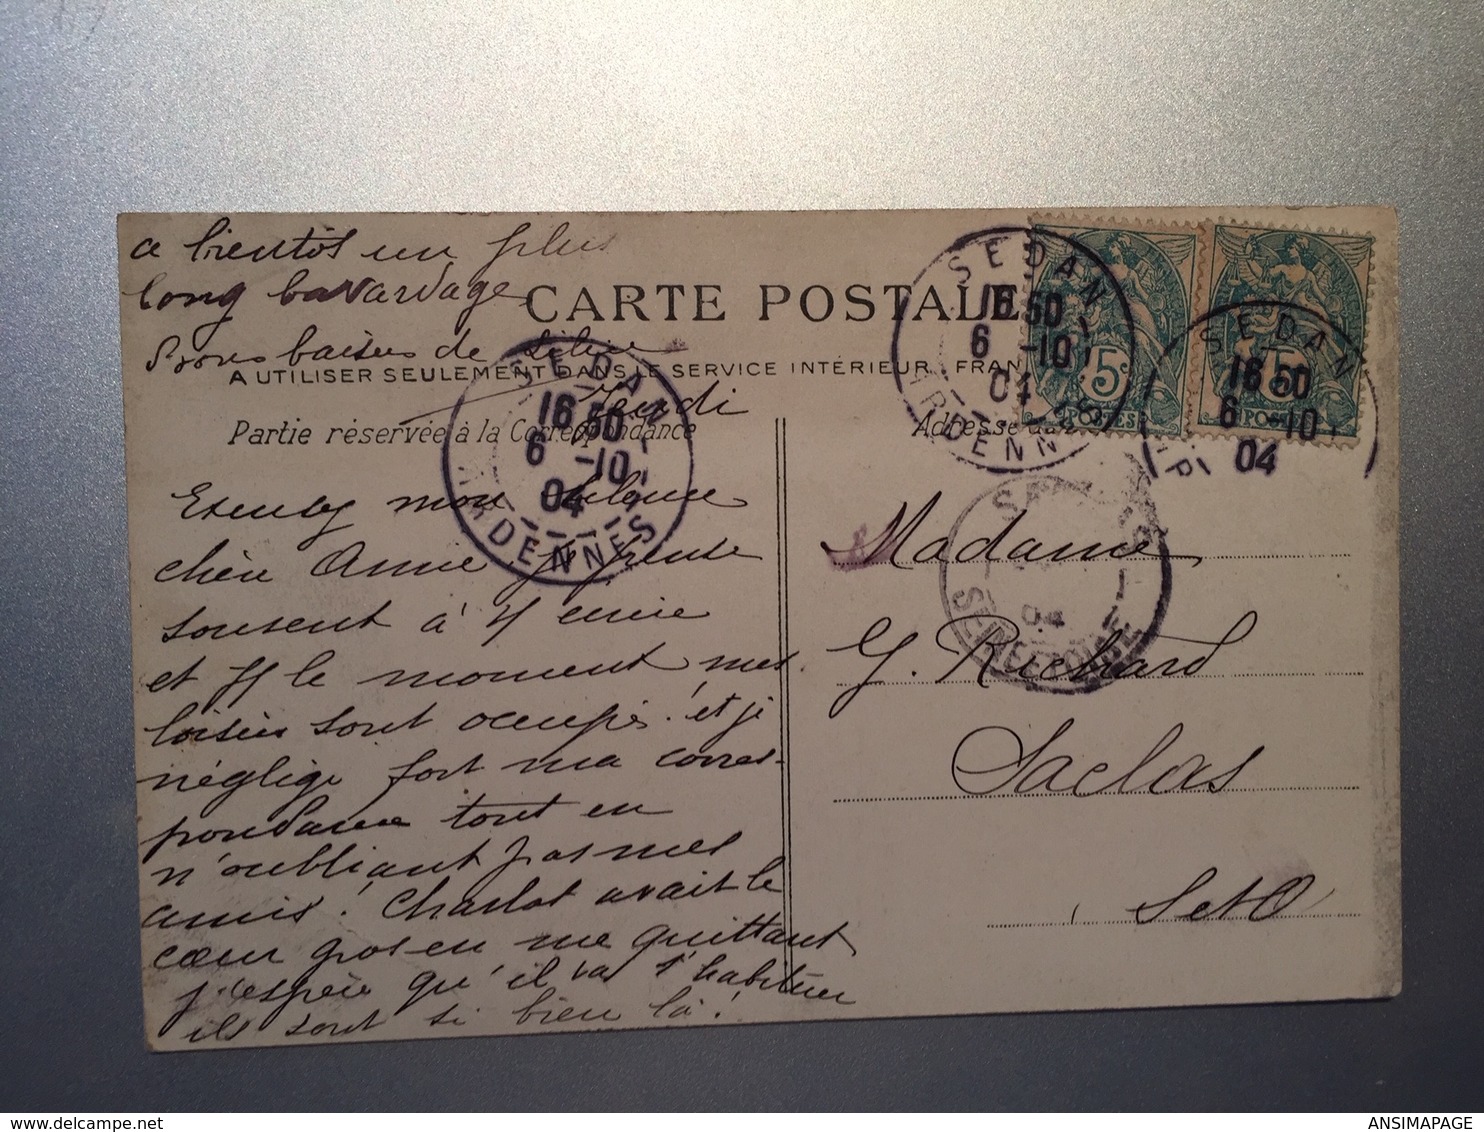 a bientôt un plus
long bavardage
bons baisers de
Jeudi
CARTE POSTALE
A UTILISER SEULEMENT DANS LE SERVICE INTÉRIEUR, FRAN
Partie réservée à la Correspondance
Adresse du
SEDAN
16 50
6 -10
04
ARDENNES
SEDAN
16 50
6 -10
04
ARDENNES
SEDAN
16 50
6 -10
04
5c
POSTES
5c
POSTES
04
SEINE ET OISE
Excusez mon silence
chère Anne je pense
souvent à
et le moment mes
loisirs sont occupés. et je
néglige fort ma corres-
pondance tout en
n'oubliant pas mes
amis! Charlot avait le
cœur gros en me quittant
j'espère qu'il va s'habituer
ils sont si bien là!
Madame
G. Richard
Saclas
S et O
delcampe.net
ANSIMAPAGE